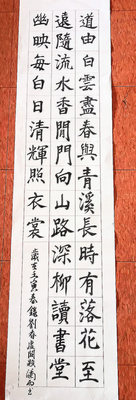 道由白雲盡春與青溪長時有落花至
遠隨流水香閒門向山路深柳讀書堂
幽映每白日清輝照衣裳
歲在壬寅春錄劉眘虛闕題